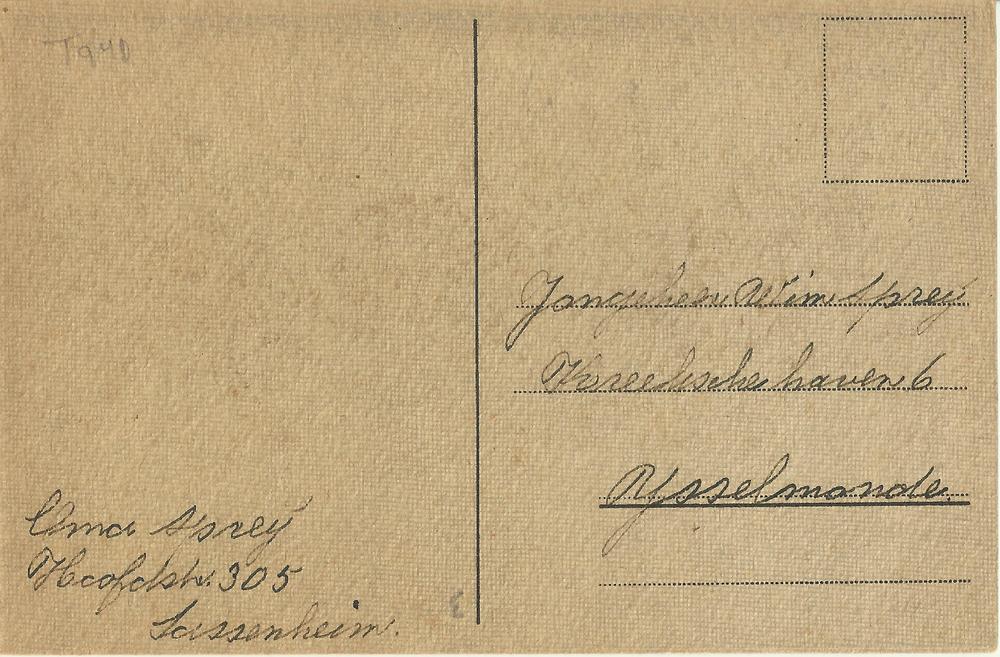 T940
Jongeheer Wim Sprey
Kreeksche haven 6
Ysselmonde.
Oma Sprey
Hoofdstr. 305
Sassenheim.
3